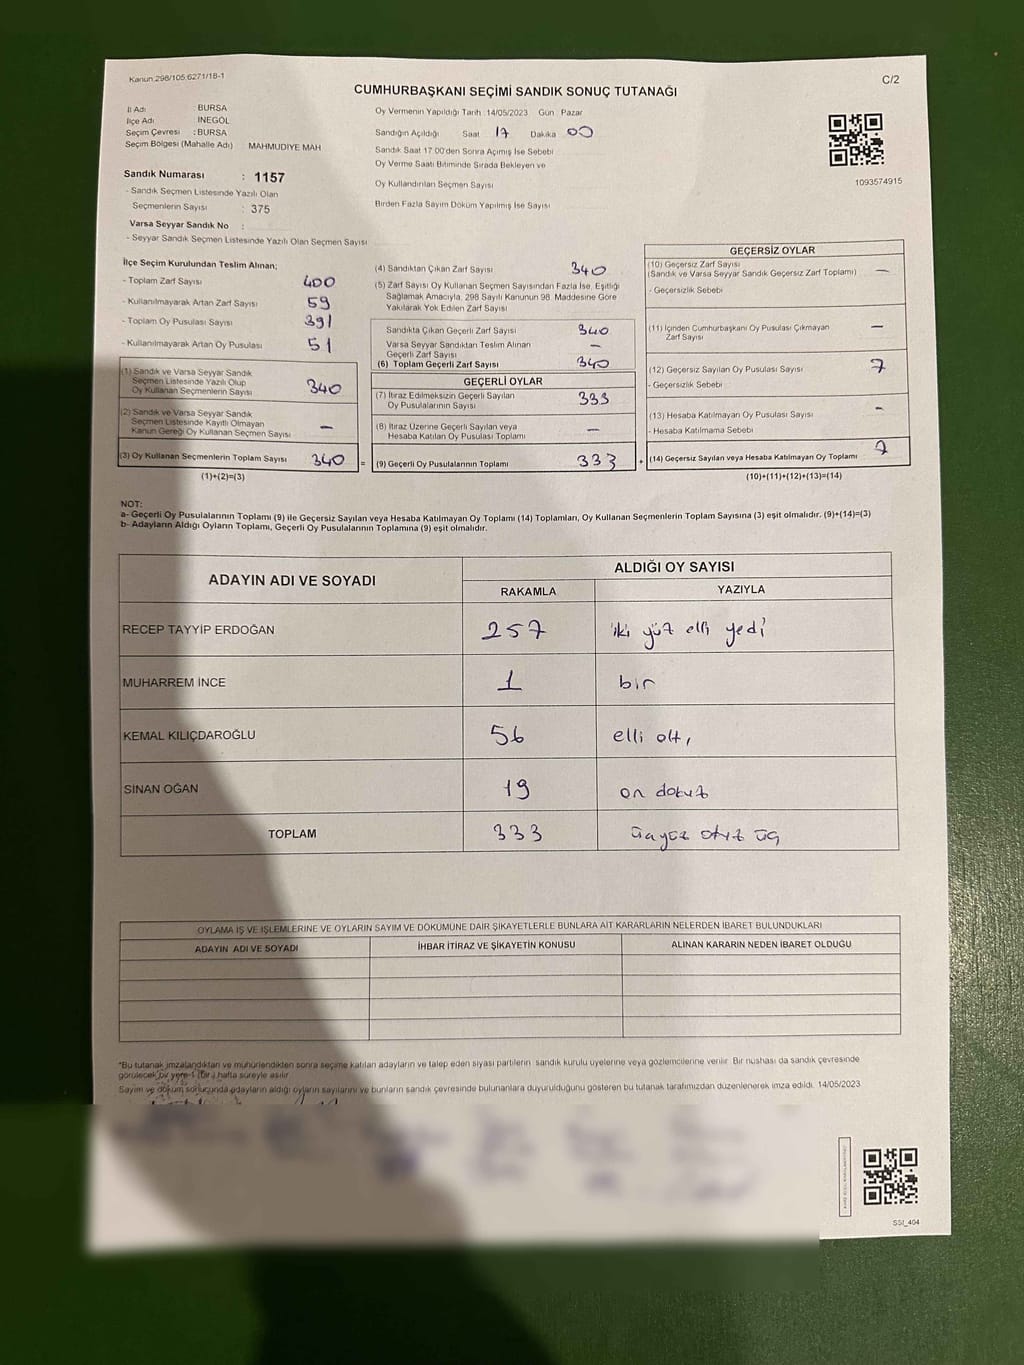 Kanun 298/105.6271/18-1
C/2
CUMHURBAŞKANI SEÇİMİ SANDIK SONUÇ TUTANAĞI
İl Adı : BURSA
İlçe Adı : İNEGÖL
Seçim Çevresi : BURSA
Seçim Bölgesi (Mahalle Adı) MAHMUDİYE MAH
Oy Vermenin Yapıldığı Tarih 14/05/2023 Gün Pazar
Sandığın Açıldığı Saat 17 Dakika 00
Sandık Saat 17 00'den Sonra Açımış İse Sebebi
Oy Verme Saati Bitiminde Sırada Bekleyen ve
Oy Kullandırılan Seçmen Sayısı
Birden Fazla Sayım Döküm Yapılmış İse Sayısı
1093574915
Sandık Numarası : 1157
- Sandık Seçmen Listesinde Yazılı Olan
Seçmenlerin Sayısı : 375
Varsa Seyyar Sandık No :
- Seyyar Sandık Seçmen Listesinde Yazılı Olan Seçmen Sayısı
İlçe Seçim Kurulundan Teslim Alınan;
- Toplam Zarf Sayısı 400
- Kullanılmayarak Artan Zarf Sayısı 59
- Toplam Oy Pusulası Sayısı 391
- Kullanılmayarak Artan Oy Pusulası 51
(1) Sandık ve Varsa Seyyar Sandık
Seçmen Listesinde Yazılı Olup
Oy Kullanan Seçmenlerin Sayısı 340
(2) Sandık ve Varsa Seyyar Sandık
Seçmen Listesinde Kayıtlı Olmayan
Kanun Gereği Oy Kullanan Seçmen Sayısı —
(3) Oy Kullanan Seçmenlerin Toplam Sayısı 340 =
(1)+(2)=(3)
(4) Sandıktan Çıkan Zarf Sayısı 340
(5) Zarf Sayısı Oy Kullanan Seçmen Sayısından Fazla İse, Eşitliği
Sağlamak Amacıyla, 298 Sayılı Kanunun 98. Maddesine Göre
Yakılarak Yok Edilen Zarf Sayısı
Sandıkta Çıkan Geçerli Zarf Sayısı 340
Varsa Seyyar Sandıktan Teslim Alınan
Geçerli Zarf Sayısı —
(6) Toplam Geçerli Zarf Sayısı 340
GEÇERLİ OYLAR
(7) İtiraz Edilmeksizin Geçerli Sayılan
Oy Pusulalarının Sayısı 333
(8) İtiraz Üzerine Geçerli Sayılan veya
Hesaba Katılan Oy Pusulası Toplamı —
(9) Geçerli Oy Pusulalarının Toplamı 333 +
GEÇERSİZ OYLAR
(10) Geçersiz Zarf Sayısı
(Sandık ve Varsa Seyyar Sandık Geçersiz Zarf Toplamı) —
- Geçersizlik Sebebi
(11) İçinden Cumhurbaşkanı Oy Pusulası Çıkmayan
Zarf Sayısı —
(12) Geçersiz Sayılan Oy Pusulası Sayısı 7
- Geçersizlik Sebebi
(13) Hesaba Katılmayan Oy Pusulası Sayısı -
- Hesaba Katılmama Sebebi
(14) Geçersiz Sayılan veya Hesaba Katılmayan Oy Toplamı 7
(10)+(11)+(12)+(13)=(14)
NOT:
a- Geçerli Oy Pusulalarının Toplamı (9) ile Geçersiz Sayılan veya Hesaba Katılmayan Oy Toplamı (14) Toplamları, Oy Kullanan Seçmenlerin Toplam Sayısına (3) eşit olmalıdır. (9)+(14)=(3)
b- Adayların Aldığı Oyların Toplamı, Geçerli Oy Pusulalarının Toplamına (9) eşit olmalıdır.
ADAYIN ADI VE SOYADI
ALDIĞI OY SAYISI
RAKAMLA YAZIYLA
RECEP TAYYİP ERDOĞAN 257 iki yüz elli yedi
MUHARREM İNCE 1 bir
KEMAL KILIÇDAROĞLU 56 elli altı
SİNAN OĞAN 19 on dokuz
TOPLAM 333 üçyüz otuz üç
OYLAMA İŞ VE İŞLEMLERİNE VE OYLARIN SAYIM VE DÖKÜMÜNE DAİR ŞİKAYETLERLE BUNLARA AİT KARARLARIN NELERDEN İBARET BULUNDUKLARI
ADAYIN ADI VE SOYADI İHBAR İTİRAZ VE ŞİKAYETİN KONUSU ALINAN KARARIN NEDEN İBARET OLDUĞU
*Bu tutanak imzalandıktan ve mühürlendikten sonra seçime katılan adayların ve talep eden siyasi partilerin sandık kurulu üyelerine veya gözlemcilerine verilir. Bir nüshası da sandık çevresinde
görülecek bir yere 1 (Bir) hafta süreyle asılır.
Sayım ve döküm sonucunda adayların aldığı oyların sayılarını ve bunların sandık çevresinde bulunanlara duyurulduğunu gösteren bu tutanak tarafımızdan düzenlenerek imza edildi. 14/05/2023
SSI_404